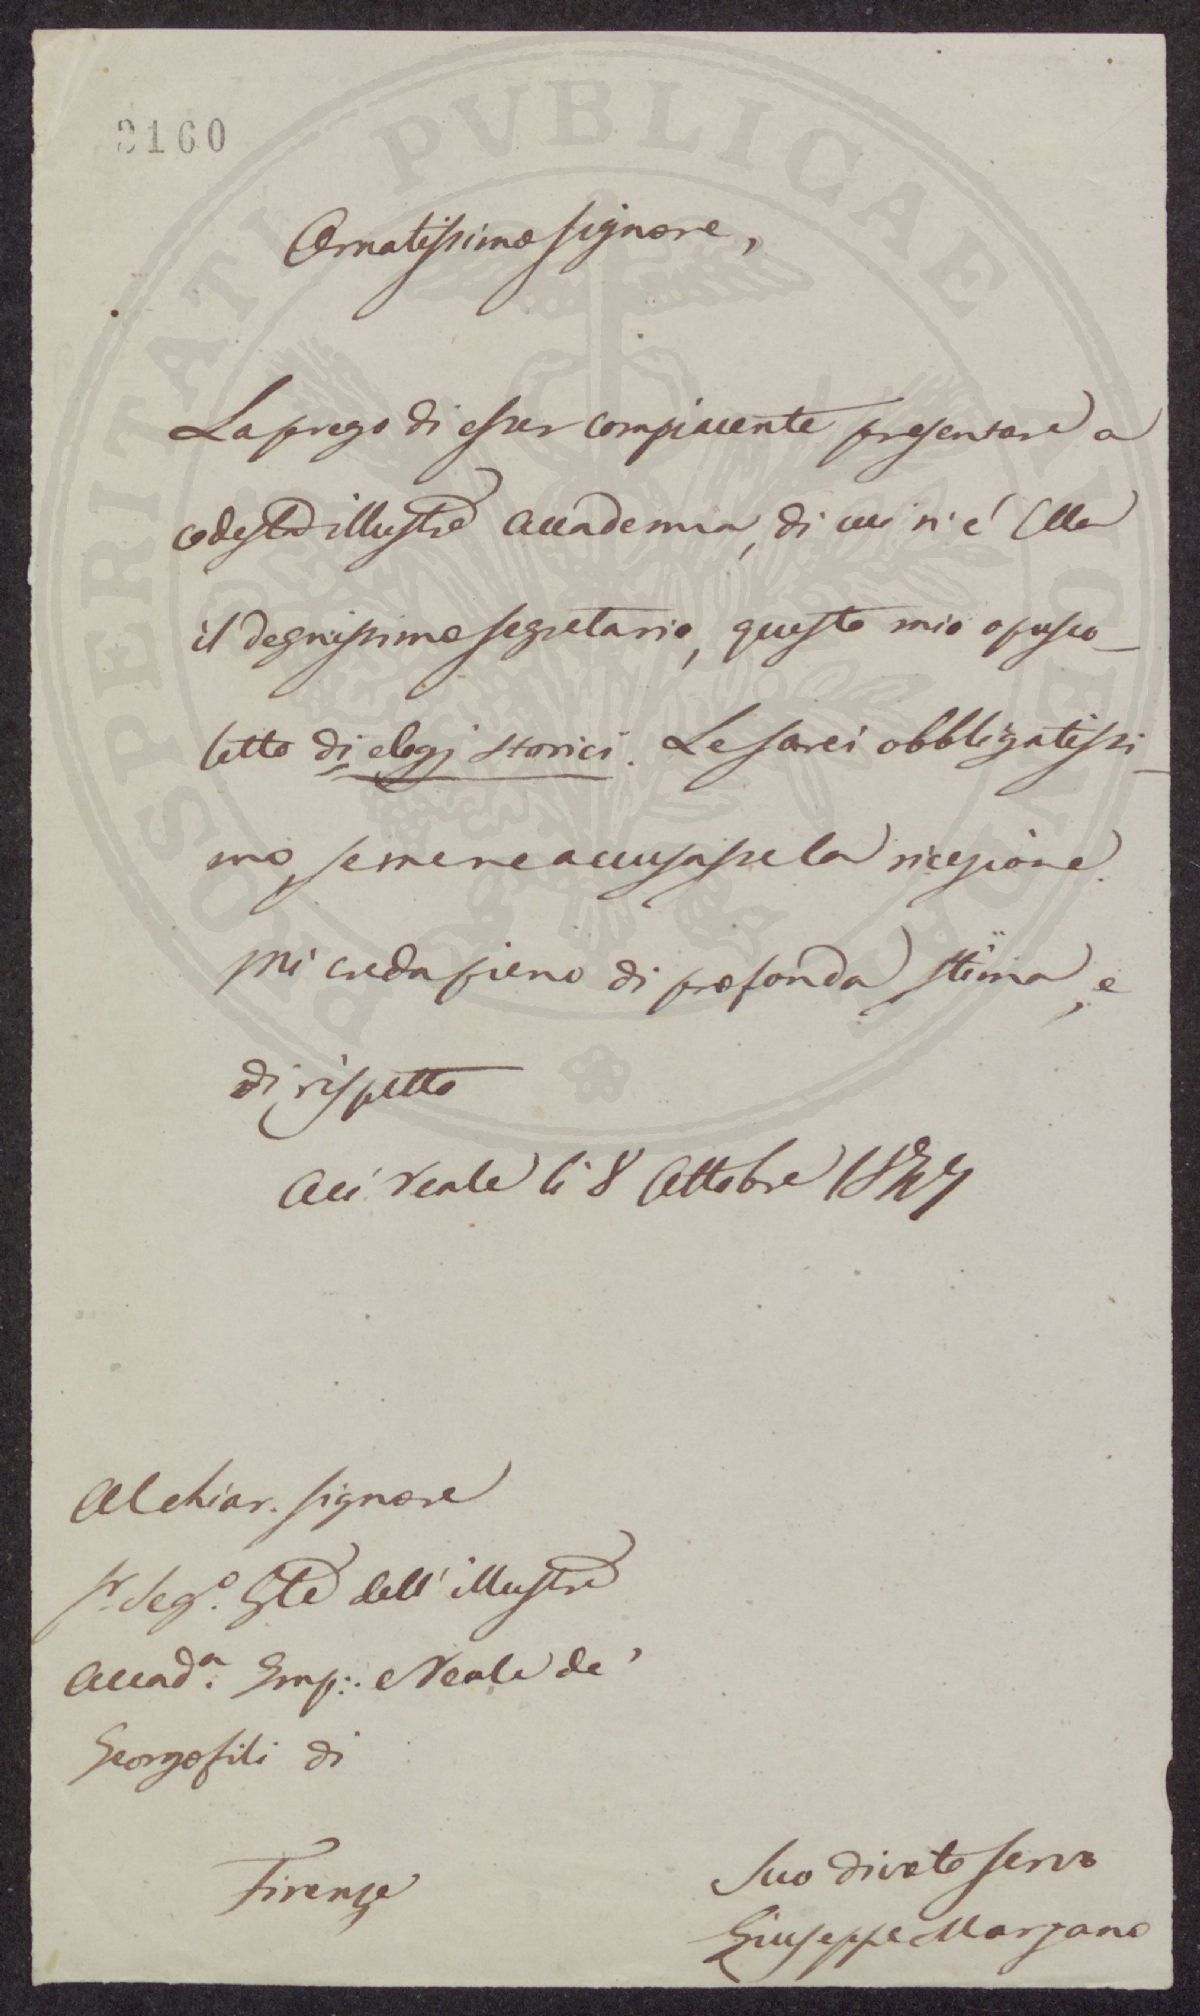 2160
Ornatissimo Signore,
La prego di esser compiacente presentare a
codesta illustre Accademia, di cui n'è Ella
il degnissimo segretario, questo mio opusco-
letto di elogj storici. Le sarei obbligatissi-
mo, se me ne accusasse la ricezione.
Mi creda pieno di profonda stima, e
di rispetto
Aci Reale li 8 Ottobre 1847
Al chiar. Signore
Sr. Segº. Gle dell'illustre
Accadª. Imp: e Reale de'
Georgofili di
Firenze
Suo divoto servo
Giuseppe Marzano
PROSPERITATI PVBLICAE AVGENDAE